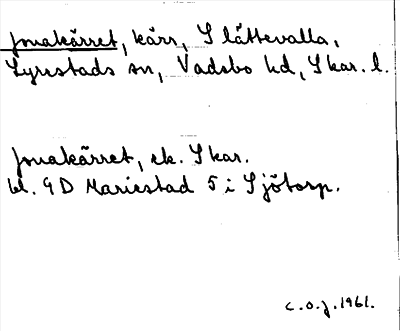 Jonakärret, kärr, Slättevalla,
Lyrestads sn, Vadsbo hd, Skar. l.
Jonakärret, ek. Skar.
bl. 9D Mariestad 5 i Sjötorp.
C.O.J. 1961.